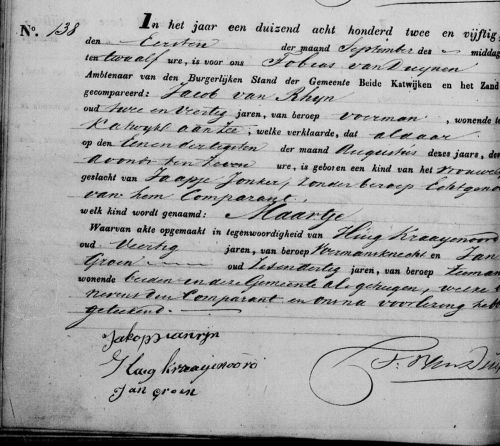 N.º 138
In het jaar een duizend acht honderd twee en vijftig,
den Eersten der maand September des middag
ten twaalf ure, is voor ons Tobias van Duijnen
Ambtenaar van den Burgerlijken Stand der Gemeente Beide Katwijken en het Zand
gecompareerd: Jacob van Rhijn
oud twee en veertig jaren, van beroep voerman, wonende te
Katwijk aan Zee, welke verklaarde, dat aldaar
op den eenendertigsten der maand Augustus dezes jaars, des
avonds ten zeven ure, is geboren een kind van het vrouwelij
geslacht van Jaapje Jonker, zonder beroep Echtgenoo
van hem Comparant.
welk kind wordt genaamd: Maartje
Waarvan akte opgemaakt in tegenwoordigheid van Huig Kraaijenoord
oud veertig jaren, van beroep Voermansknecht en Jan
Groen oud Zesendertig jaren, van beroep Zeeman
wonende beiden in deze Gemeente als getuigen, welke
nevens den Comparant en ons na voorlezing heb
geteekend.
Jakop van rijn
Huig Kraaijenoord
Jan groen